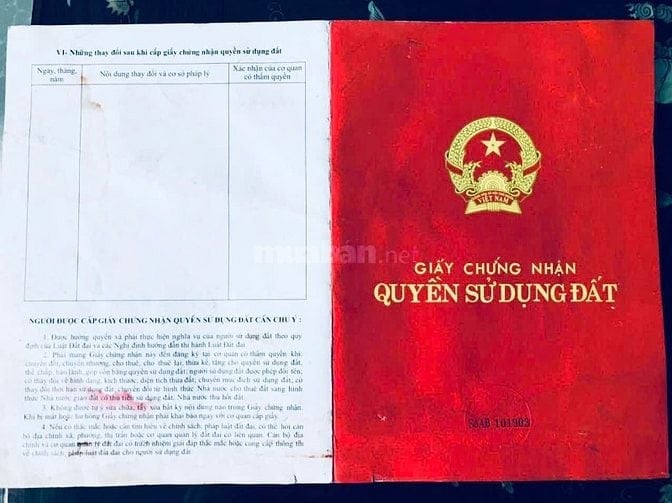 VI- Những thay đổi sau khi cấp giấy chứng nhận quyền sử dụng đất
Ngày, tháng, năm
Nội dung thay đổi và cơ sở pháp lý
Xác nhận của cơ quan có thẩm quyền
NGƯỜI ĐƯỢC CẤP GIẤY CHỨNG NHẬN QUYỀN SỬ DỤNG ĐẤT CẦN CHÚ Ý :
1. Được hưởng quyền và phải thực hiện nghĩa vụ của người sử dụng đất theo quy
định của Luật Đất đai và các Nghị định hướng dẫn thi hành Luật Đất đai.
2. Phải mang Giấy chứng nhận này đến đăng ký tại cơ quan có thẩm quyền khi:
chuyển đổi, chuyển nhượng, cho thuê, cho thuê lại, thừa kế, tặng cho quyền sử dụng đất,
thế chấp, bảo lãnh, góp vốn bằng quyền sử dụng đất; người sử dụng đất được phép đổi tên;
có thay đổi về hình dạng, kích thước, diện tích thửa đất; chuyển mục đích sử dụng đất; có
thay đổi thời hạn sử dụng đất; chuyển đổi từ hình thức Nhà nước cho thuê đất sang hình
thức Nhà nước giao đất có thu tiền sử dụng đất; Nhà nước thu hồi đất.
3. Không được tự ý sửa chữa, tẩy xóa bất kỳ nội dung nào trong Giấy chứng nhận.
Khi bị mất hoặc hư hỏng Giấy chứng nhận phải khai báo ngay với cơ quan cấp giấy.
4. Nếu có thắc mắc hoặc cần tìm hiểu về chính sách, pháp luật đất đai, có thể hỏi cán
bộ địa chính xã, phường, thị trấn hoặc cơ quan quản lý đất đai có liên quan. Cán bộ địa
chính và cơ quan quản lý đất đai có trách nhiệm giải đáp thắc mắc hoặc cung cấp thông tin
về chính sách, pháp luật đất đai cho người sử dụng đất.
VIỆT NAM
muaban.net
GIẤY CHỨNG NHẬN
QUYỀN SỬ DỤNG ĐẤT
101903